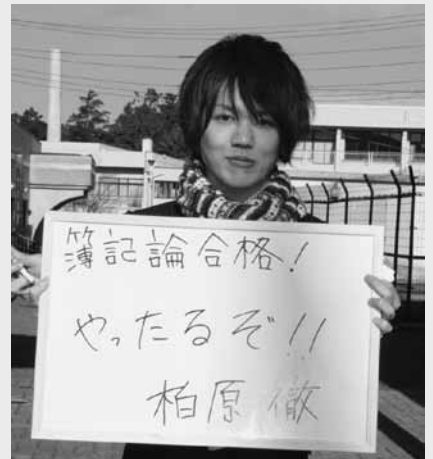 簿記論合格!
やったるぞ!!
柏原 徹